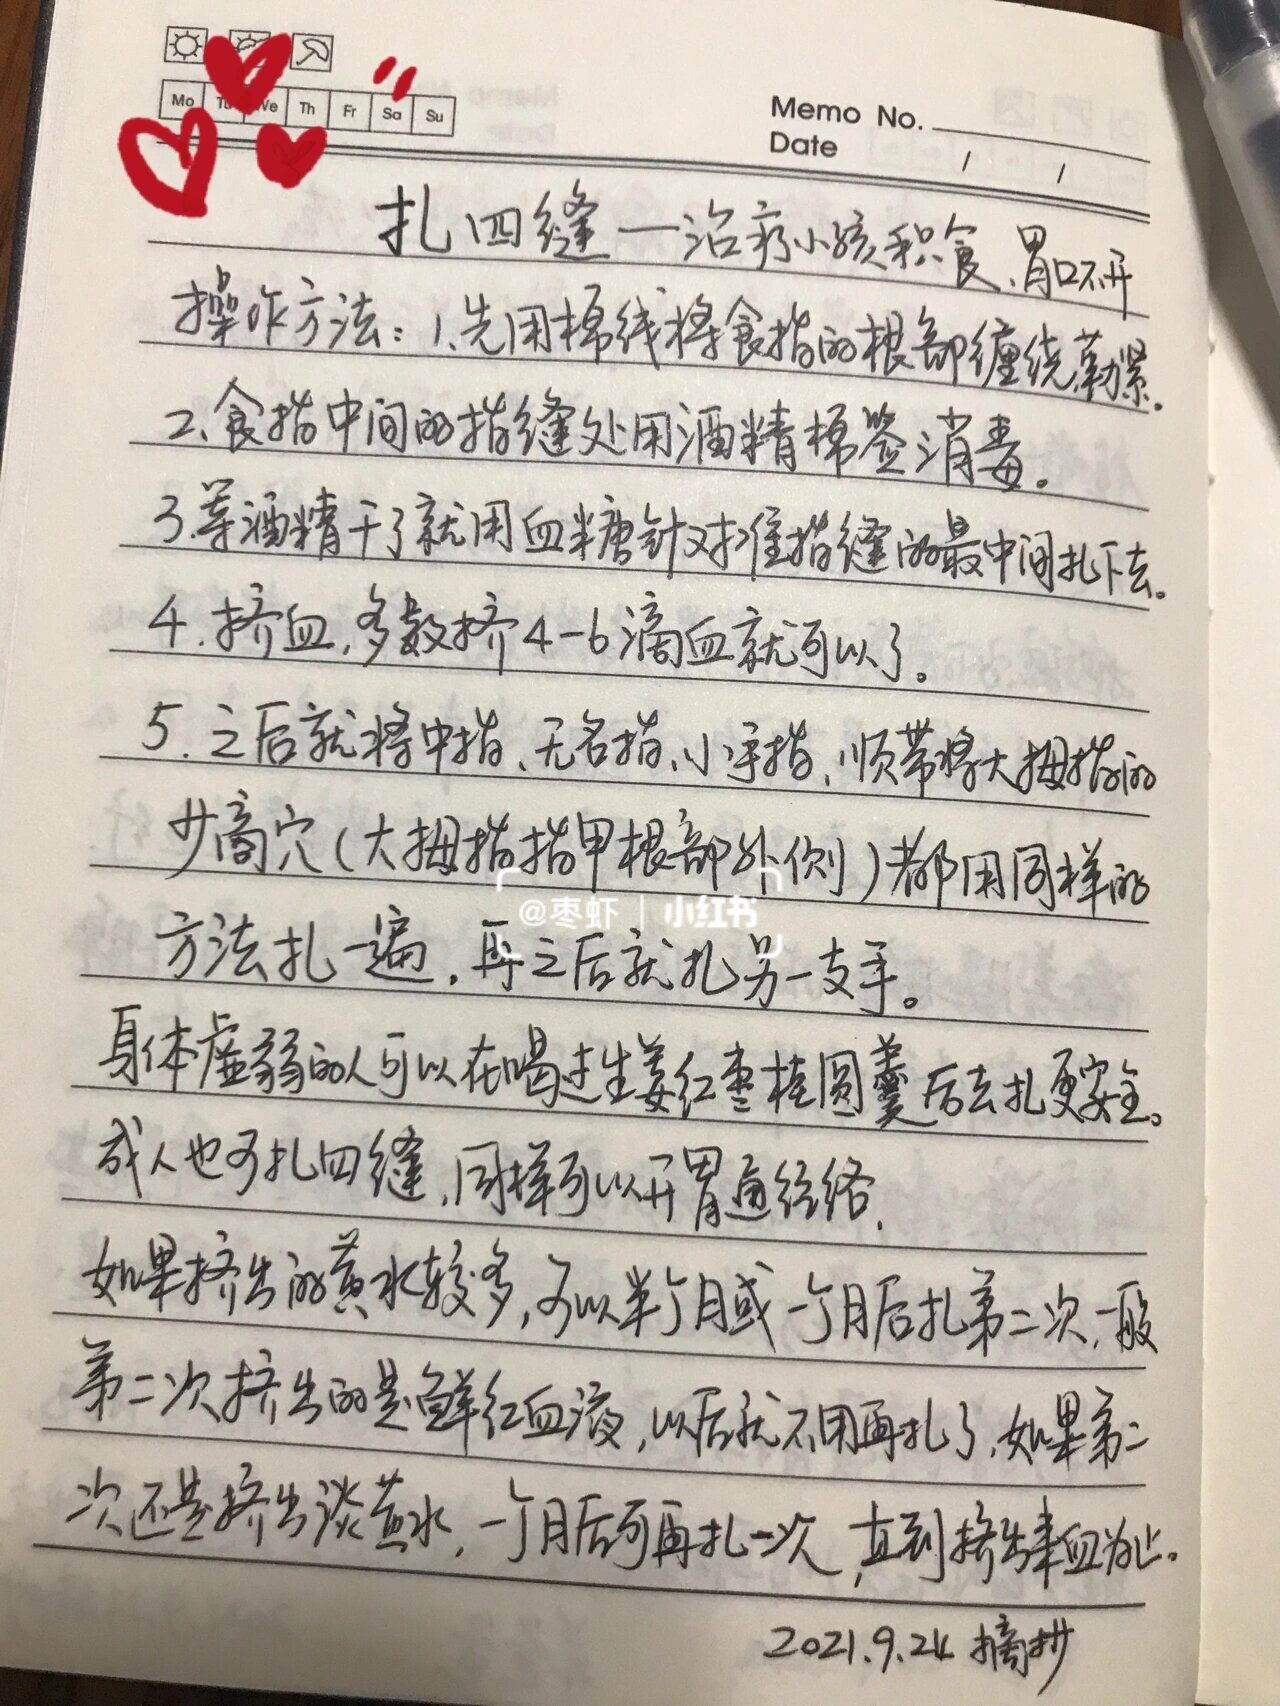 Mo Tu We Th Fr Sa Su
Memo No.
Date / /
扎四缝—治疗小孩积食、胃口不开
操作方法：1、先用棉线将食指的根部缠绕勒紧。
2、食指中间的指缝处用酒精棉签消毒。
3.等酒精干了就用血糖针对准指缝的最中间扎下去。
4.挤血，多数挤4-6滴血就可以了。
5.之后就将中指、无名指、小手指、顺带将大拇指的
少商穴(大拇指指甲根部外侧)都用同样的
@枣虾 | 小红书
方法扎一遍，再之后就扎另一支手。
身体虚弱的人可以在喝过生姜红枣桂圆羹后去扎更安全。
成人也可扎四缝，同样可以开胃通经络，
如果挤出的黄水较多，可以半个月或一个月后扎第二次，一般
第二次挤出的是鲜红血液，以后就不用再扎了，如果第二
次还是挤出淡黄水，一个月后可再扎一次，直到挤出单血为止。
2021.9.24 摘抄